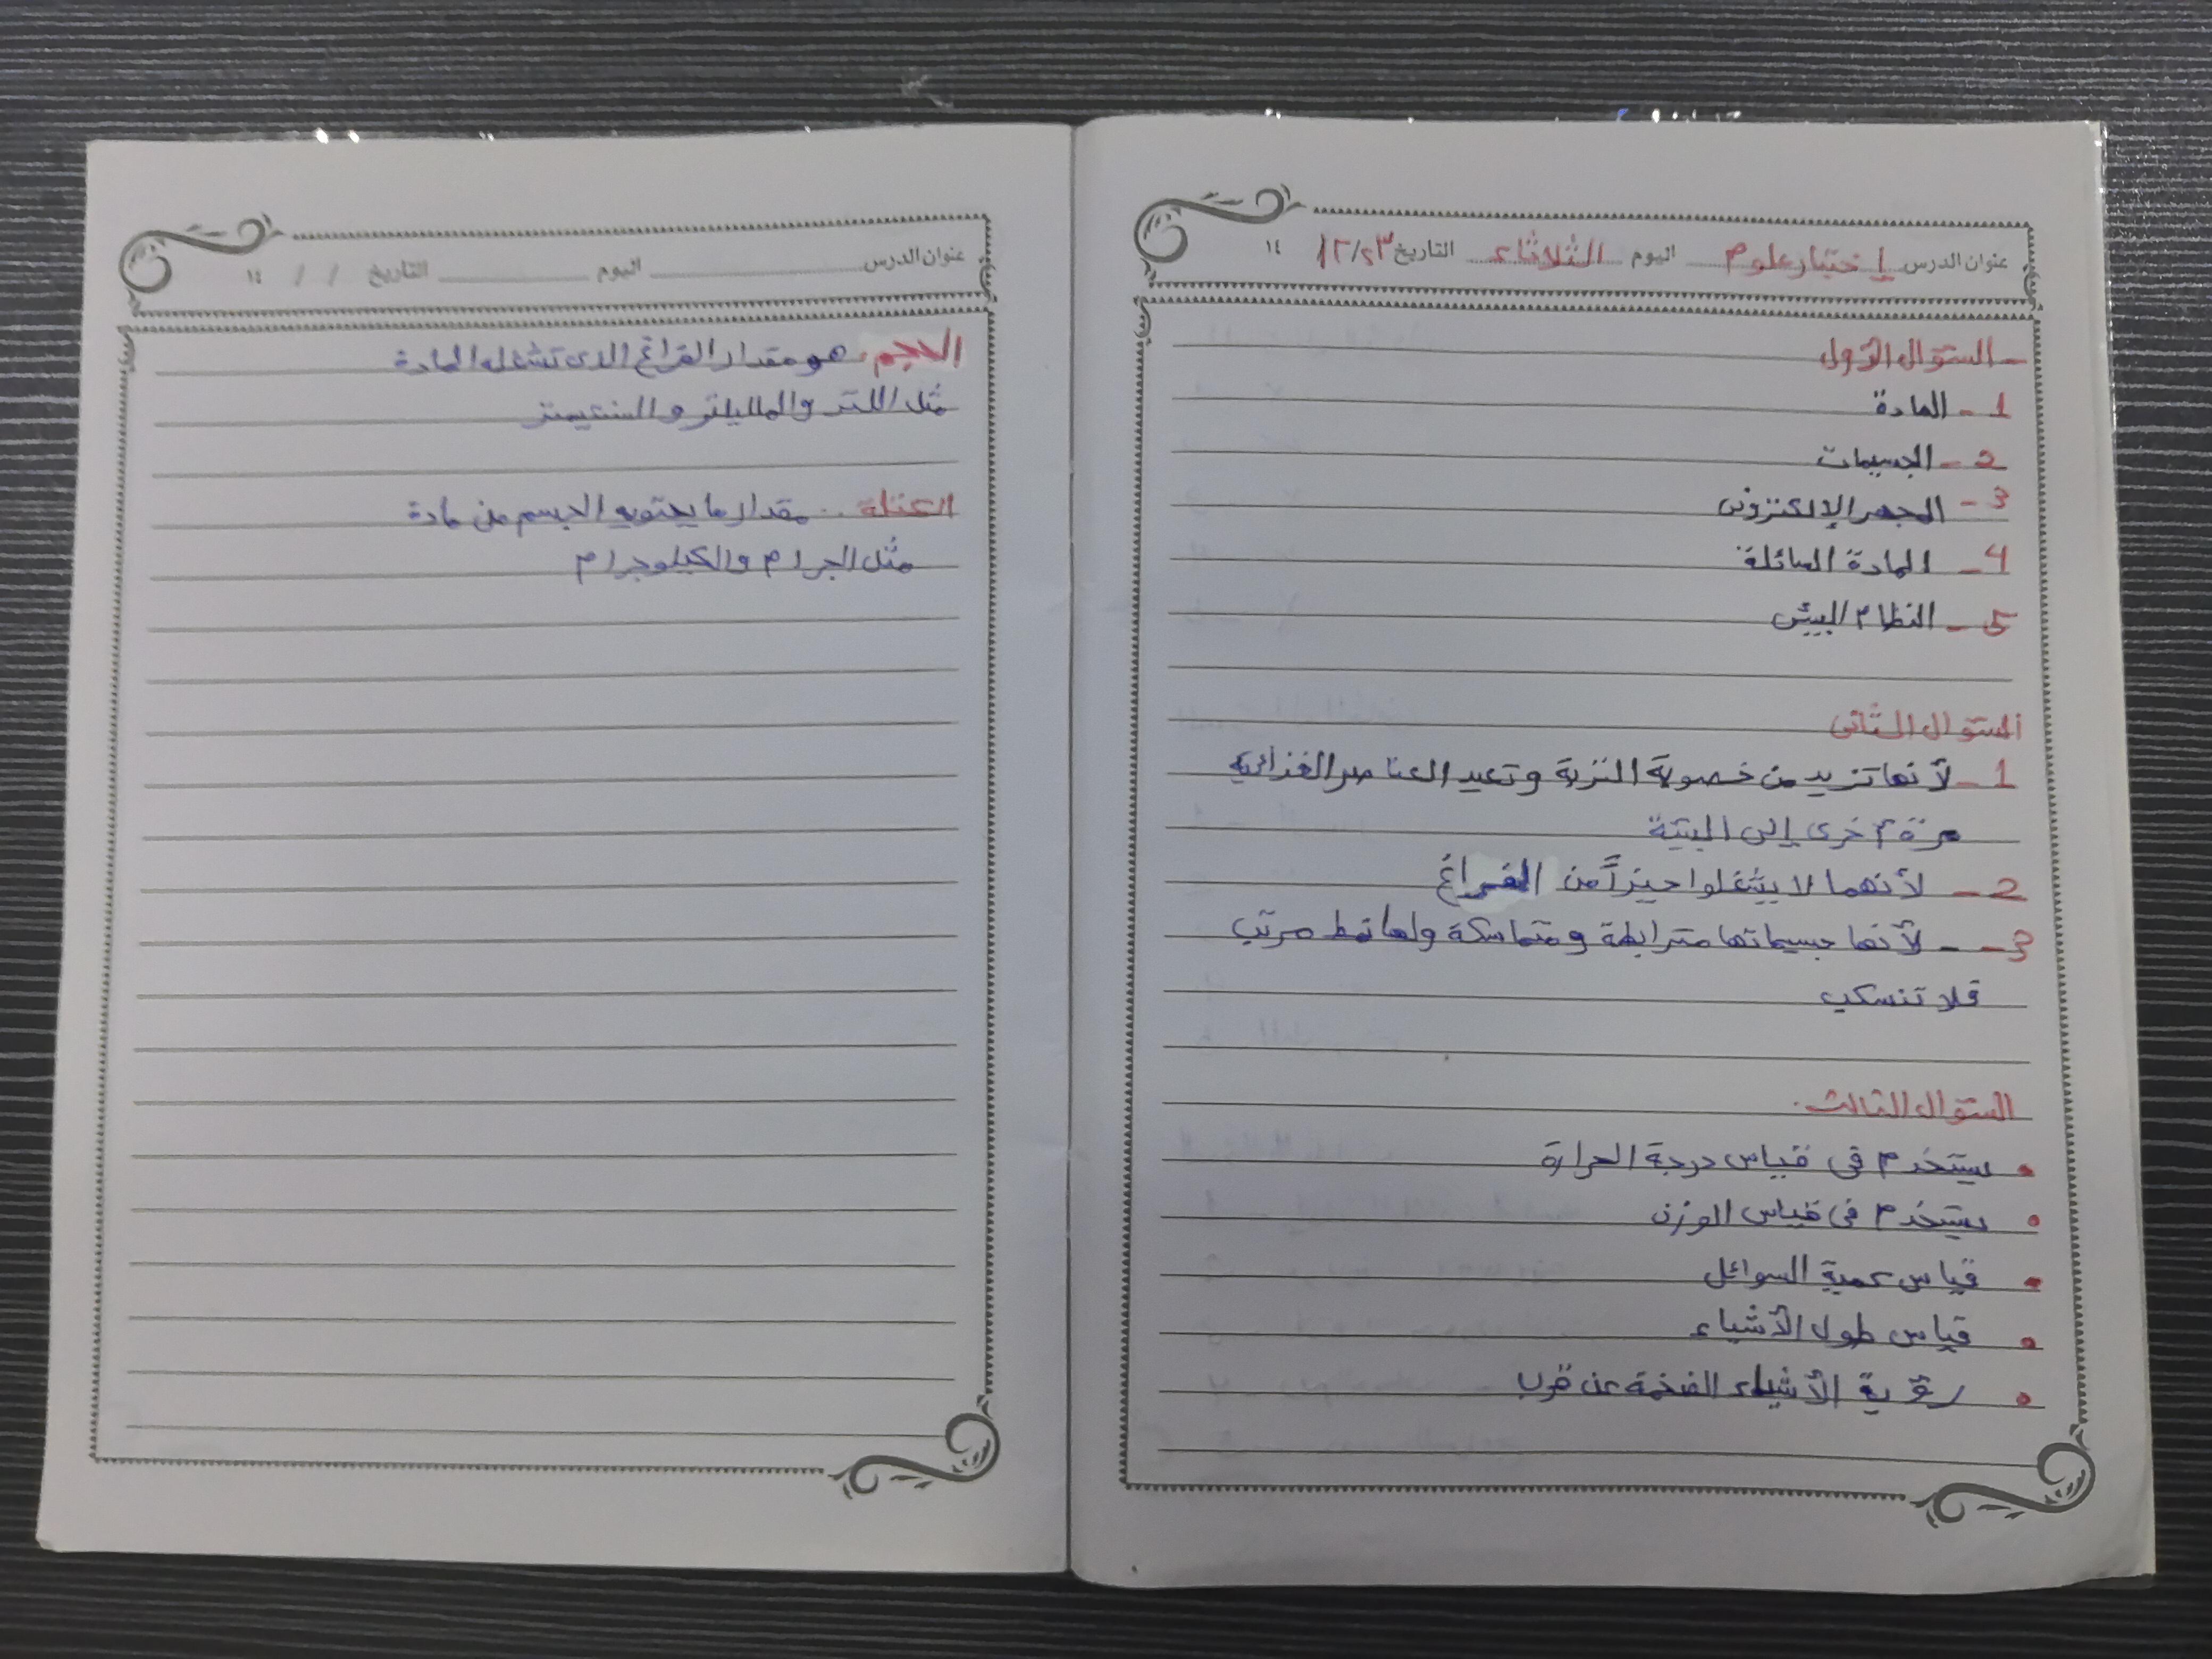 عنوان الدرس إختبار علوم اليوم الثلاثاء التاريخ ١٢/٢٣ ١٤
- السؤال الأول
1 - المادة
2 - الجسيمات
3 - المجهر الإلكتروني
4 - المادة السائلة
5 - النظام البيئي
السؤال الثاني
1 - لأنها تزيد من خصوبة التربة وتعيد العناصر الغذائية
مرة أخرى إلى البيئة
2 - لأنهما لا يشغلوا حيزاً من الفراغ
3 - - لأنها جسيماتها مترابطة ومتماسكة ولها نمط مرتب
فلا تنسكب
السؤال الثالث
• يستخدم في قياس درجة الحرارة
• يستخدم في قياس الوزن
• قياس كمية السوائل
• قياس طول الأشياء
• رؤية الأشياء الضخمة عن قرب
عنوان الدرس اليوم التاريخ / / ١٤
الحجم: هو مقدار الفراغ الذى تشغله المادة
مثل اللتر والملليلتر والسنتيمتر
الكتلة .. مقدار ما يحتويه الجسم من مادة
مثل الجرام والكيلوجرام